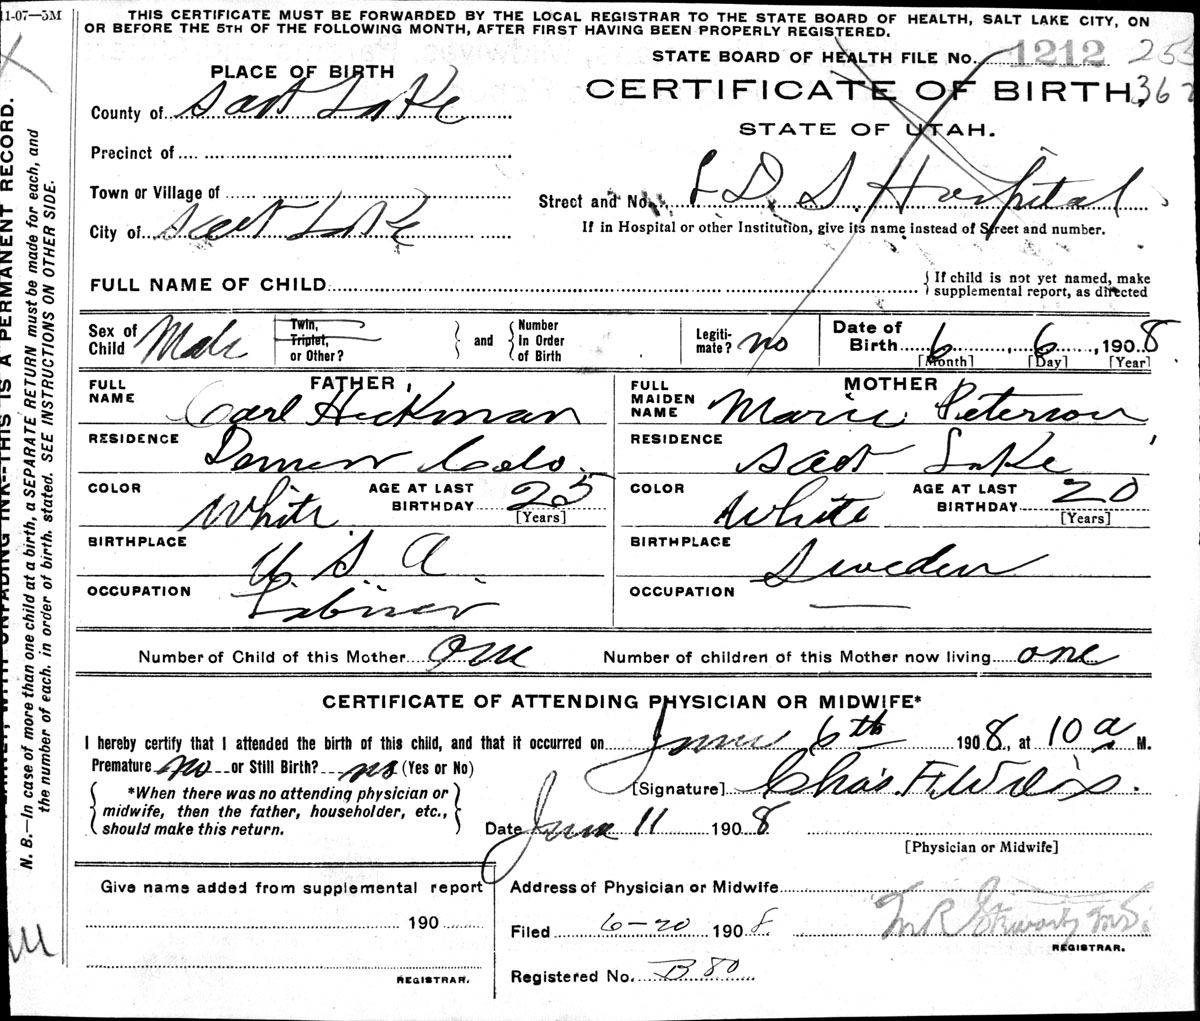 11-07—5M
THIS CERTIFICATE MUST BE FORWARDED BY THE LOCAL REGISTRAR TO THE STATE BOARD OF HEALTH, SALT LAKE CITY, ON
OR BEFORE THE 5TH OF THE FOLLOWING MONTH, AFTER FIRST HAVING BEEN PROPERLY REGISTERED.
STATE BOARD OF HEALTH FILE NO. 1212
PLACE OF BIRTH
CERTIFICATE OF BIRTH,
County of Salt Lake
STATE OF UTAH.
Precinct of
Town or Village of
Street and No. L D S Hospital
City of Salt Lake
If in Hospital or other Institution, give its name instead of Street and number.
FULL NAME OF CHILD
{ If child is not yet named, make
supplemental report, as directed
Sex of Child Male
Twin, Triplet, or Other?
and
Number In Order of Birth
Legiti-mate? no
Date of Birth 6, 6, 1908
[Month] [Day] [Year]
FATHER
FULL NAME Carl Hickman
RESIDENCE Denver Colo.
COLOR White
AGE AT LAST BIRTHDAY 25
[Years]
BIRTHPLACE U. S. A.
OCCUPATION Laborer
MOTHER
FULL MAIDEN NAME Marie Peterson
RESIDENCE Salt Lake
COLOR White
AGE AT LAST BIRTHDAY 20
[Years]
BIRTHPLACE Sweden
OCCUPATION —
Number of Child of this Mother One
Number of children of this Mother now living one
CERTIFICATE OF ATTENDING PHYSICIAN OR MIDWIFE*
I hereby certify that I attended the birth of this child, and that it occurred on June 6th 1908, at 10 a M.
Premature no or Still Birth? no (Yes or No)
[Signature] Chas. F. Wilcox.
*When there was no attending physician or
midwife, then the father, householder, etc.,
should make this return.
Date June 11 1908
[Physician or Midwife]
Give name added from supplemental report
190
REGISTRAR.
Address of Physician or Midwife
Filed 6-20 1908
M R Stewart M.D.
REGISTRAR.
Registered No. B 80
N. B.—In case of more than one child at a birth, a SEPARATE RETURN must be made for each, and
the number of each, in order of birth, stated. SEE INSTRUCTIONS ON OTHER SIDE.
WITH UNFADING INK--THIS IS A PERMANENT RECORD.